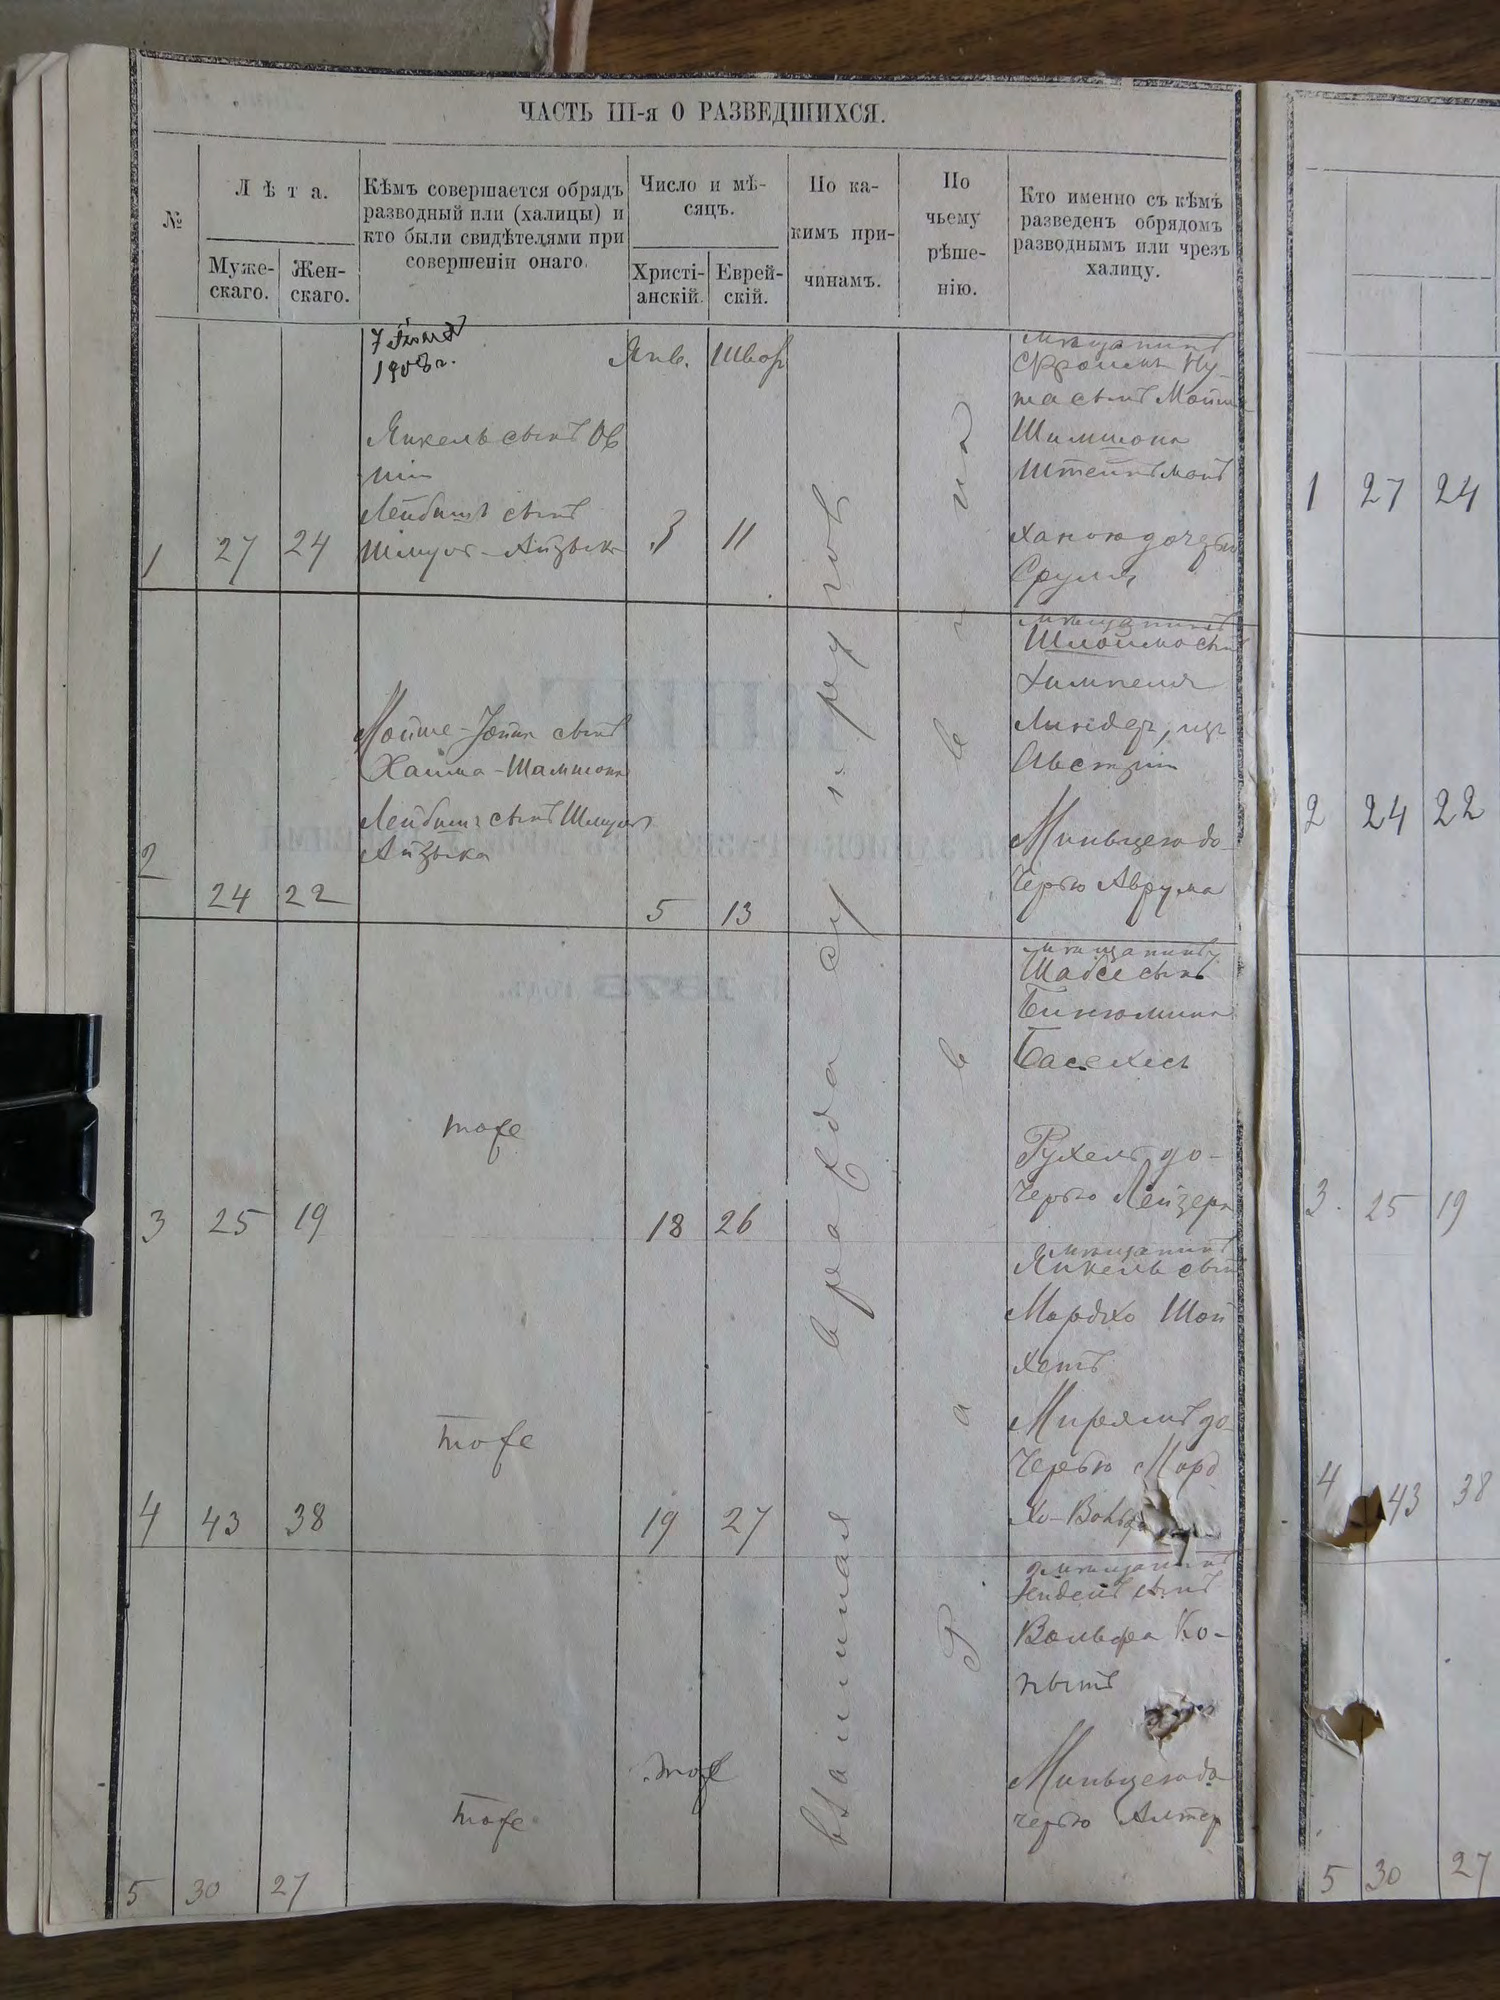 ЧАСТЬ III-я О РАЗВЕДШИХСЯ.
№
Лѣта.
Муже-
скаго.
Жен-
скаго.
Кѣмъ совершается обрядъ
разводный или (халицы) и
кто были свидѣтелями при
совершеніи онаго.
Число и мѣ-
сяцъ.
Христі-
анскій.
Еврей-
скій.
По ка-
кимъ при-
чинамъ.
По
чьему
рѣше-
нію.
Кто именно съ кѣмъ
разведенъ обрядомъ
разводнымъ или чрезъ
халицу.
1908 г.
Янв.
Шват
взаимная вражда супруговъ
Раввинъ
1
27
24
Янкель сынъ Ов
шіи
Лейбишъ сынъ
Шмуля-Айзыка
3
11
мѣщанинъ
Фроимъ Ну-
та сынъ Мойше-
Шимшона
Штейнъманъ
Ханою дочерью
Сруля
2
24
22
Мойше-Іойна сынъ
Хаима-Шамшона
Лейбишъ сынъ Шмуля
Айзыка
5
13
мѣщанинъ
Шлоймо сынъ
Химпеля
Линдер, изъ
Австріи
Миньцею до-
черью Аврума
3
25
19
тоже
18
26
мѣщанинъ
Шабсе сынъ
Бинюмина
Басехесъ
Рухель до-
черью Лейзера
4
43
38
тоже
19
27
мѣщанинъ
Янкель сынъ
Мордхо Шой
хетъ
Мирямъ до-
черью Морд
хо-Вольфа
5
30
27
тоже
тоже
мѣщанинъ
Зейделъ сынъ
Вольфа Ко-
пытъ
Миньцею до
черью Алтер
1
27
24
2
24
22
3.
25
19
4
43
38
5
30
27